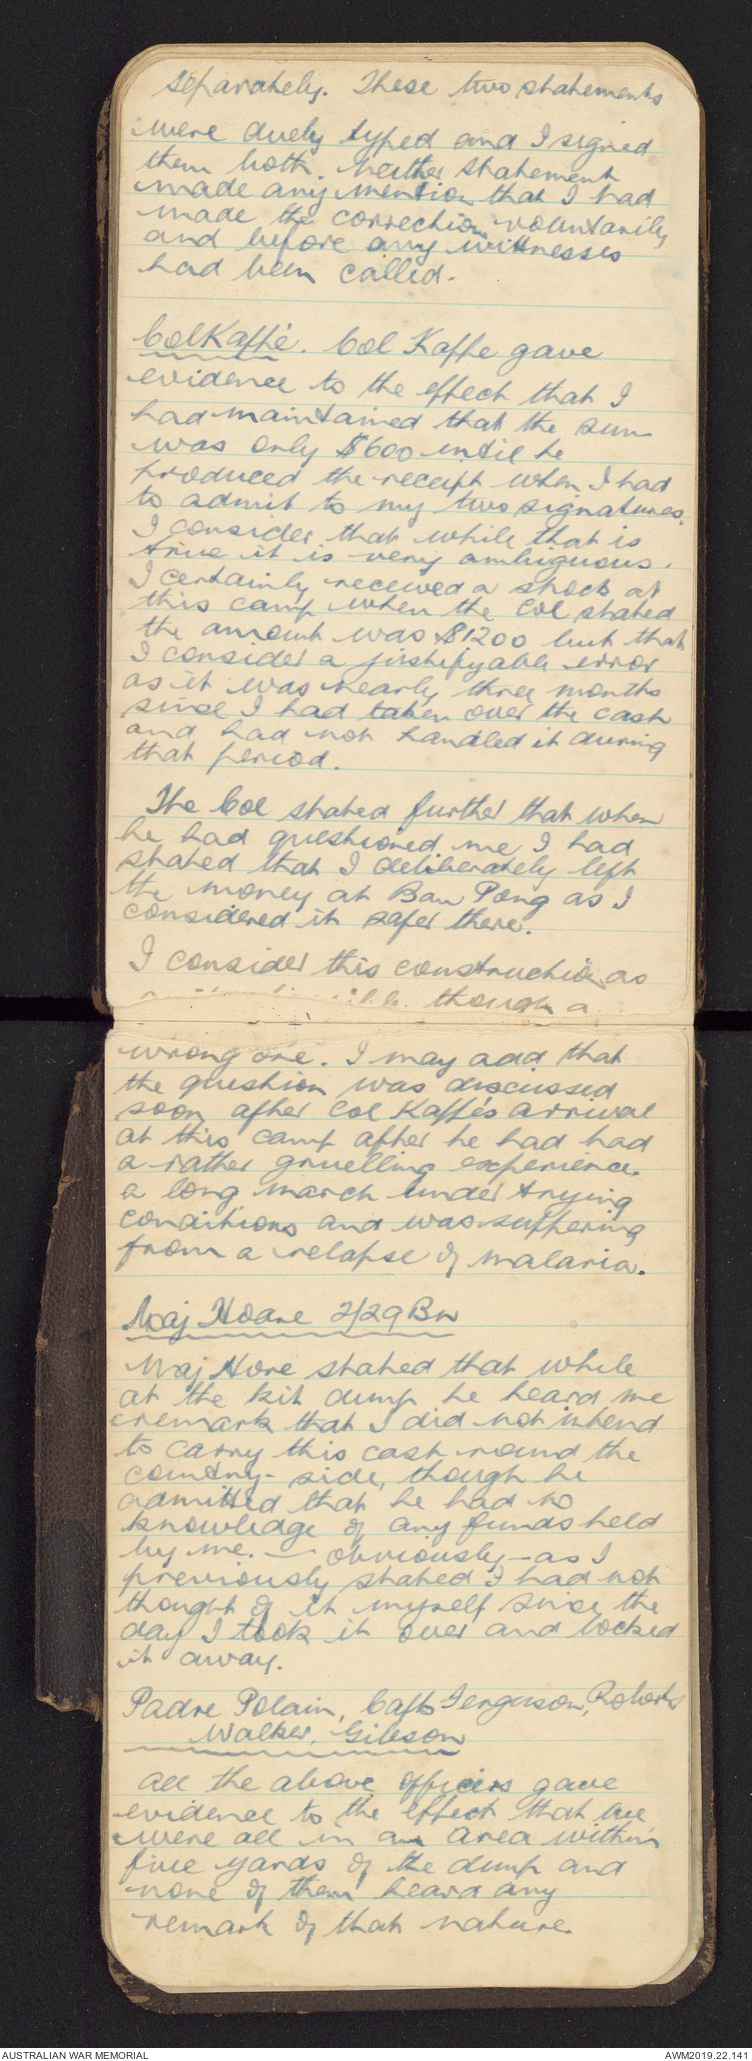 separately. These two statements
were duely typed and I signed
them both. Neither statement
made any mention that I had
made the correction voluntarily
and before any witnesses
had been called.
Col Kaffé. Col Kaffe gave
evidence to the effect that I
had maintained that the sum
was only $600 until he
produced the receipt when I had
to admit to my two signatures.
I consider that while that is
true it is very ambiguous.
I certainly received a shock at
this camp when the Col stated
the amount was $1200 but that
I consider a justifyable error
as it was nearly three months
since I had taken over the cash
and had not handled it during
that period.
The Col stated further that when
he had questioned me I had
stated that I deliberately left
the money at Ban Pong as I
considered it safer there.
I consider this construction as
though a
wrong one. I may add that
the question was discussed
soon after Col Kaffe's arrival
at this camp after he had had
a rather gruelling experience.
a long march under trying
conditions and was suffering
from a relapse of malaria.
Maj Hoare 2/29 Bn
Maj Hore stated that while
at the kit dump he heard me
remark that I did not intend
to carry this cash round the
country-side, though he
admitted that he had no
knowledge of any funds held
by me. — obviously – as I
previously stated I had not
thought of it myself since the
day I took it over and locked
it away.
Padre Polain, Capts Ferguson, Roberts
Walker, Gibson
all the above officers gave
evidence to the effect that we
were all in an area within
five yards of the dump and
none of them heard any
remark of that nature.
AUSTRALIAN WAR MEMORIAL
AWM2019.22.141